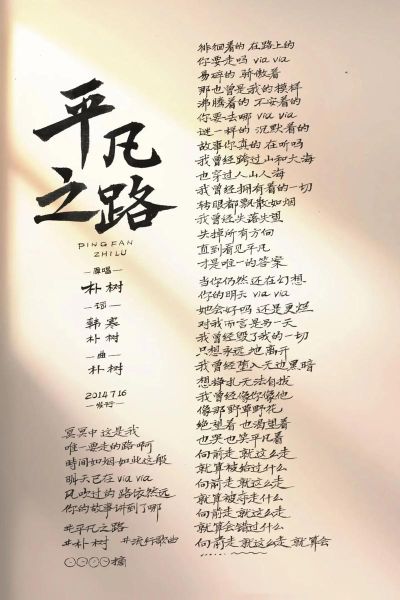 平凡
之路
PING FAN
ZHI LU
原唱
朴树
词
韩寒
朴树
曲
朴树
2014 7 16
发行
徘徊着的 在路上的
你要走吗 via via
易碎的 骄傲着
那也曾是我的模样
沸腾着的 不安着的
你要去哪 via via
谜一样的 沉默着的
故事你真的 在听吗
我曾经跨过山和大海
也穿过人山人海
我曾经拥有着的一切
转眼都飘散如烟
我曾经失落失望
失掉所有方向
直到看见平凡
才是唯一的答案
当你仍然 还在幻想
你的明天 via via
她会好吗 还是更烂
对我而言是另一天
我曾经毁了我的一切
只想永远 地 离开
我曾经堕入无边黑暗
想挣扎无法自拔
我曾经像你像他
像那野草野花
绝望着 也渴望着
也哭也笑平凡着
向前走 就这么走
就算被给过什么
向前走 就这么走
就算被夺走什么
向前走 就这么走
就算会错过什么
向前走 就这么走 就算会
冥冥中 这是我
唯一要走的路啊
时间如烟 如此这般
明天已在 via via
风吹过的 路依然远
你的故事讲到了哪
#平凡之路
#朴树 #流行歌曲
摘